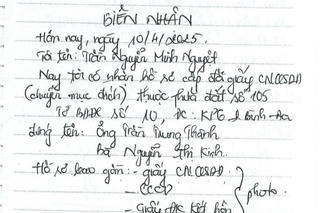 BIÊN NHẬN
Hôm nay, ngày 10/4/2025.
Tôi tên: Trần Nguyễn Minh Nguyệt
Nay tôi có nhận hồ sơ cấp đổi giấy CNQSDĐ
(chuyển mục đích) thuộc thửa đất số 105
Tờ BĐĐC số 10, ĐC: KP6 Bình-An
đứng tên: Ông Trần Trung Thành
Bà Nguyễn Thị Kinh.
Hồ sơ bao gồm: - giấy CNQSDĐ
- CCCD
photo.
- Giấy ĐK kết hôn